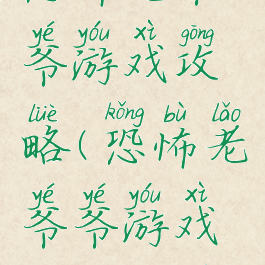 yé yóu xì gōng
爷游戏攻
lüè kǒng bù lǎo
略(恐怖老
yé yé yóu xì
爷爷游戏